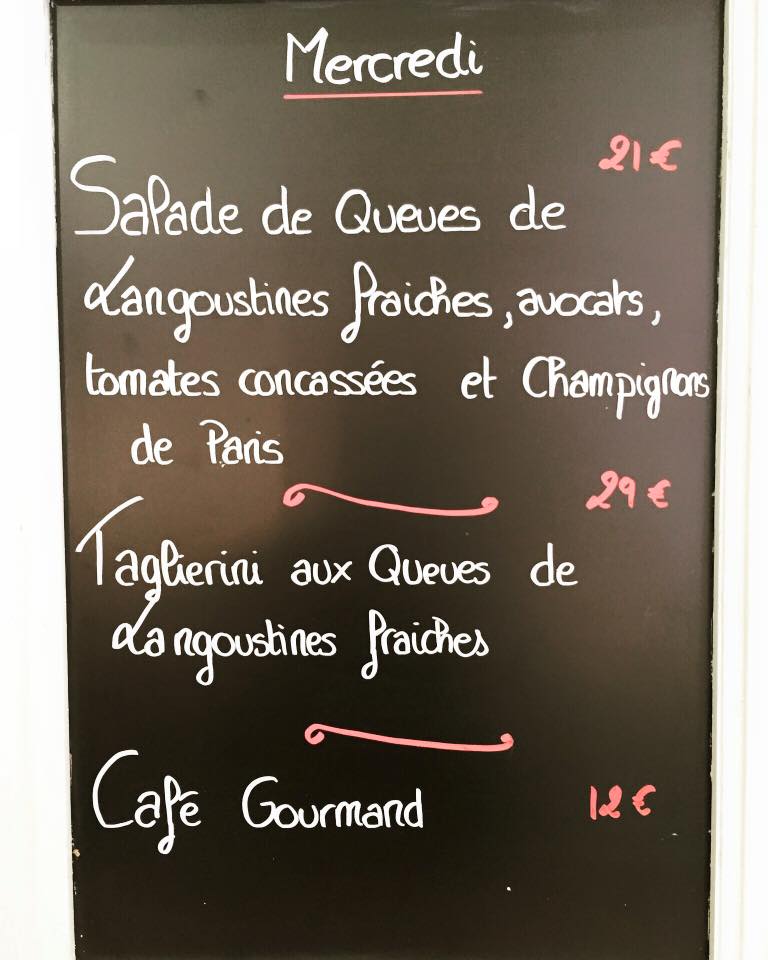 Mercredi
21 €
Salade de Queues de
Langoustines fraiches, avocats,
tomates concassées et Champignons
de Paris
29 €
Taglierini aux Queues de
Langoustines fraiches
Café Gourmand 12 €